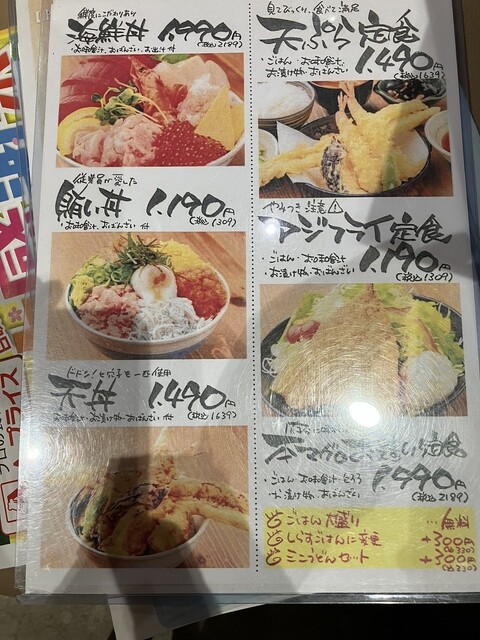 鮮度にこだわりあり
海鮮丼 1,990円
(税込2189)
・お味噌汁、おばんざい、お出汁 付
従業員が愛した
賄い丼 1,190円
(税込1309)
・お味噌汁、おばんざい 付
天丼 1,490円
(税込1639)
お味噌汁・お漬け物・おばんざい 付
見てびっくり、食べて満足
天ぷら定食
1,490円
(税込1639)
・ごはん・お味噌汁
お漬け物・おばんざい
やみつき注意⚠
アジフライ定食
1,190円
(税込1309)
・ごはん・お味噌汁
・お漬け物・おばんざい
定食
1,990円
(税込2189)
・ごはん・お味噌汁・とろろ
・お漬け物・おばんざい
ごはん大盛り … 無料
しらすごはんに変更 +300円
(税込330)
ミニうどんセット +300円
(税込330)
プライス